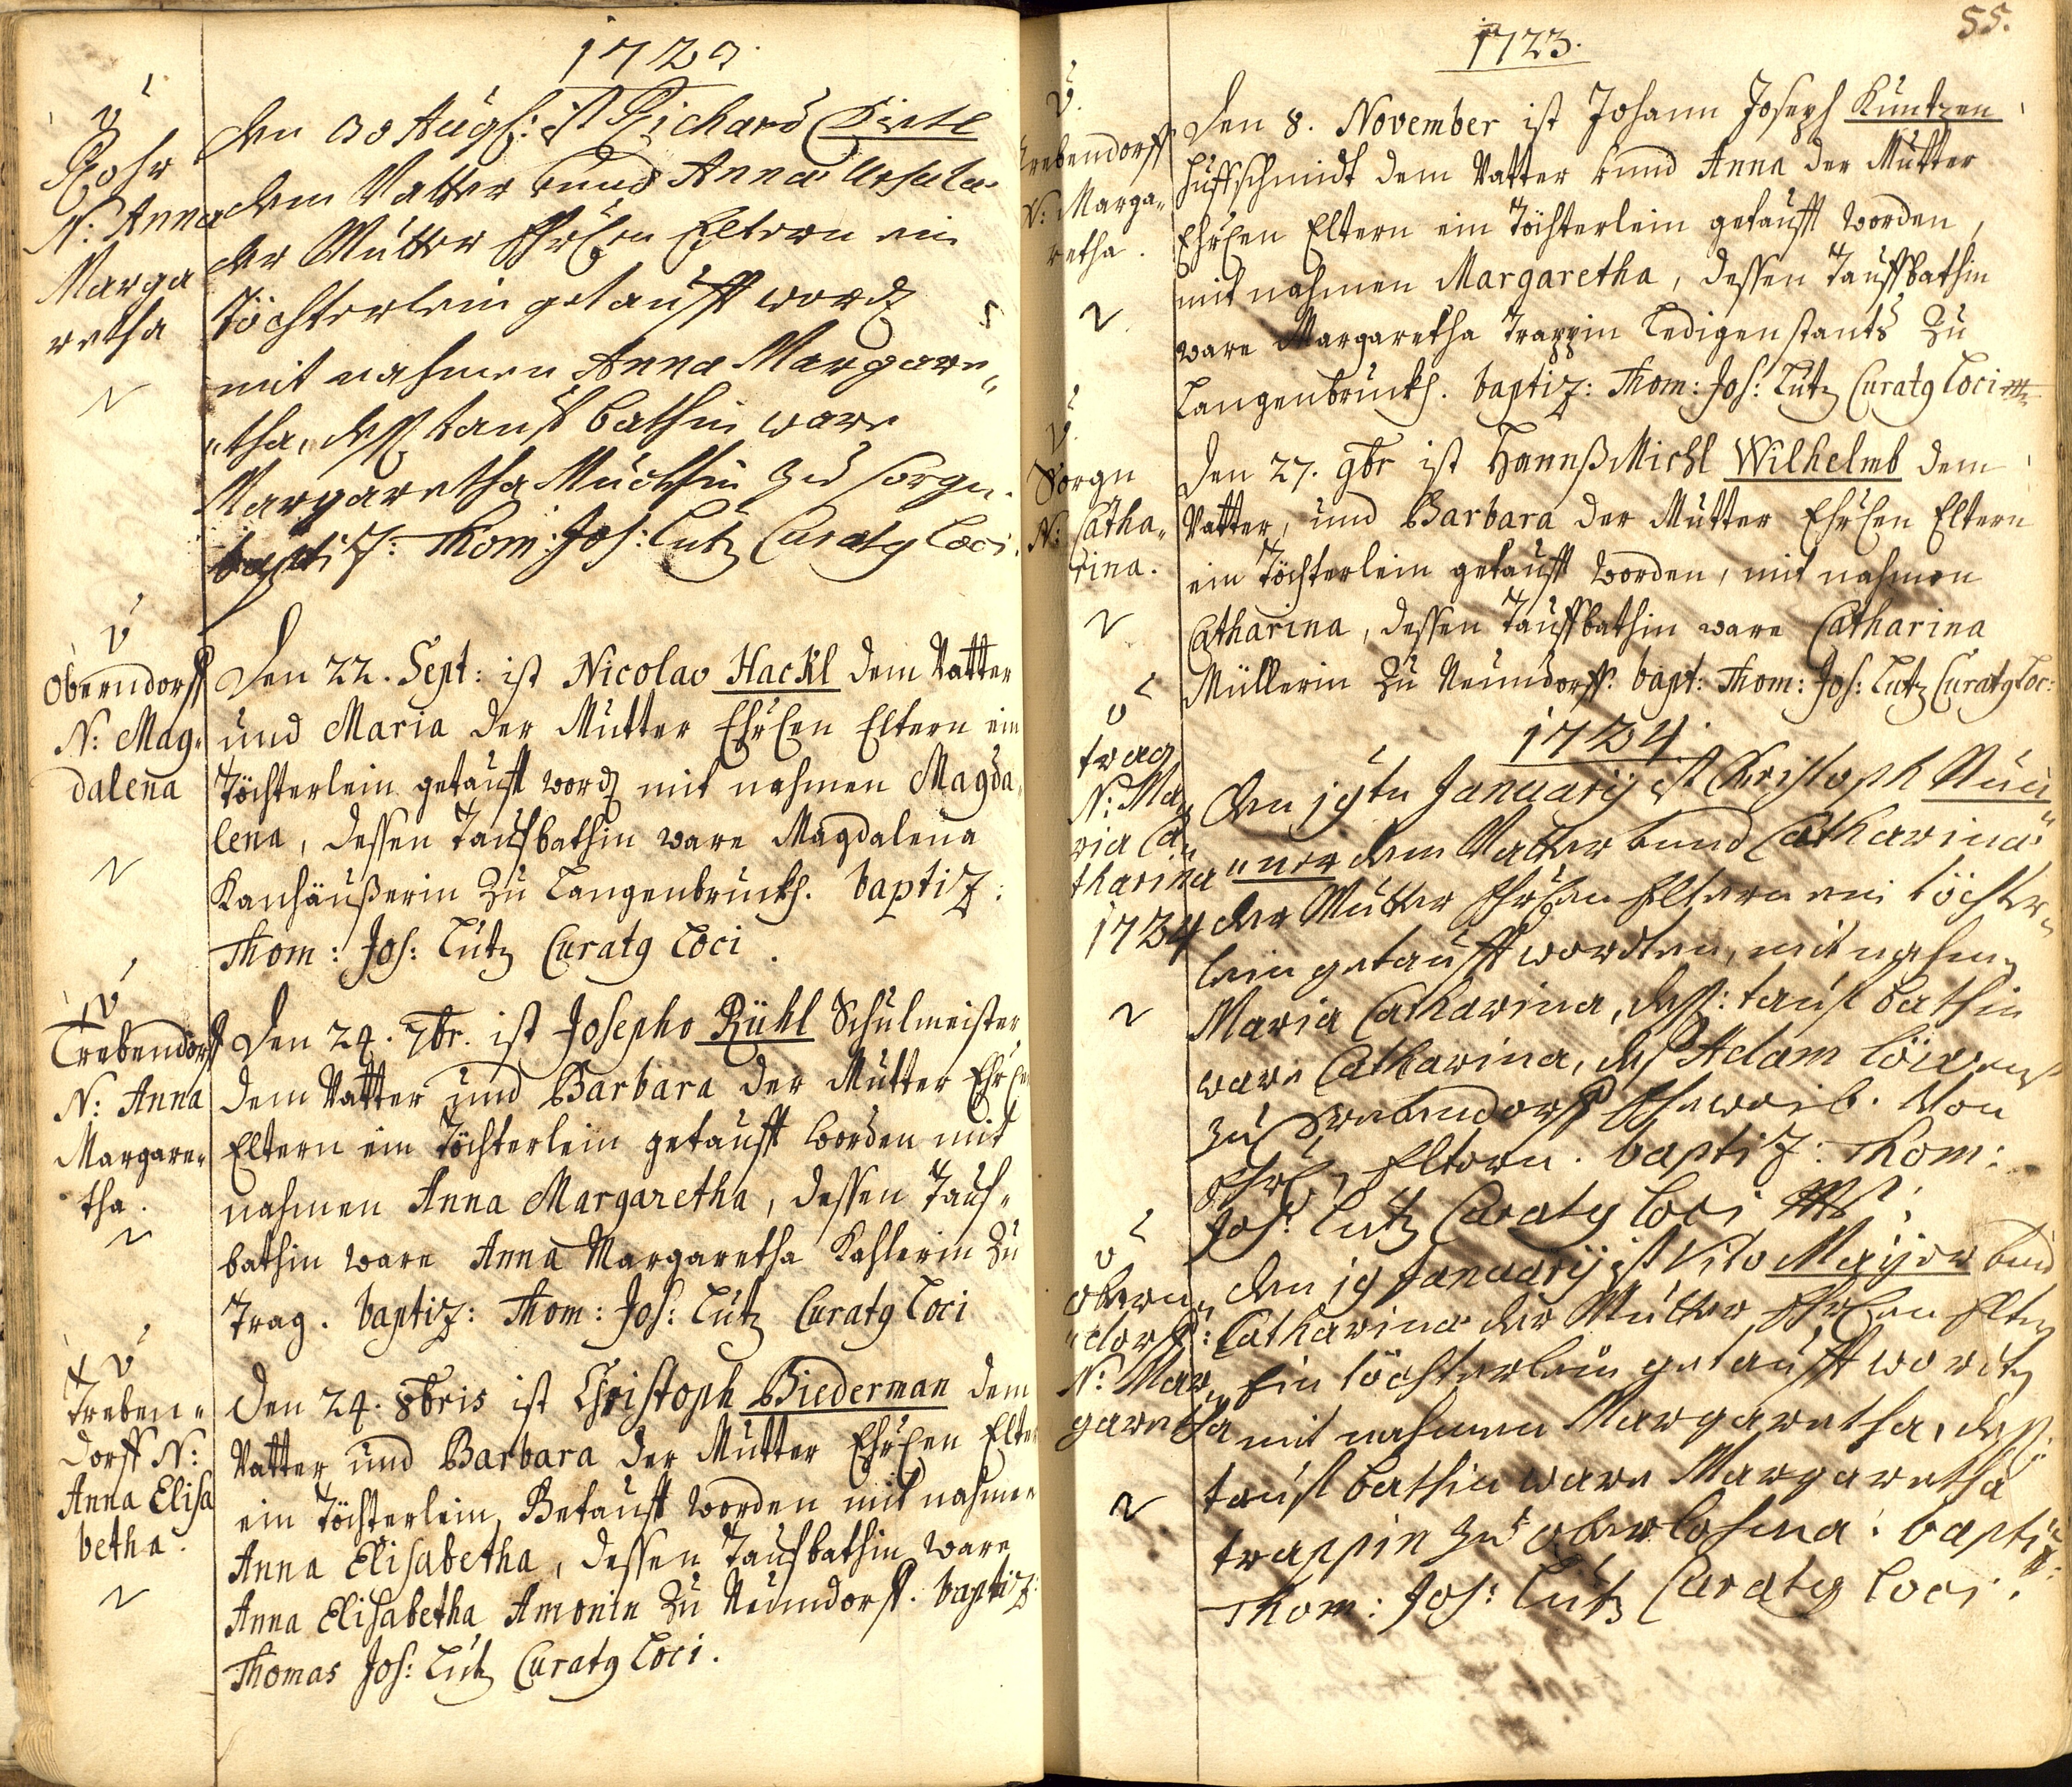 1723.
Rohr
N: Anna
Marga
retha
den 30 Augs: ist Richard
dem Vatter und Anna Ursula
der Mutter Ehrlen Eltern ein
Töchterlein getaufft word
mit nahmen Anna Margare„
„tha, dess taufbathin ware
Margaretha zu Sorgn.
baptiz: Thom: Jos: Lutz Curatg Loci.
Oberndorff
N: Mag„
dalena
Den 22. Sept: ist Nicolao Hackl dem Vatter
und Maria der Mutter Ehrlen Eltern ein
Töchterlein getaufft word mit nahmen Magda„
lena, dessen Taufbathin ware Magdalena
Kanhäußerin zu Langenbruckh. baptiz:
Thom: Jos: Lutz Curatg Loci.
Trebendorff
N: Anna
Margare„
tha.
Den 24. 7br. ist Josepho Rühl Schulmeister
dem Vatter und Barbara der Mutter Ehrlen
Eltern ein Töchterlein getaufft worden mit
nahmen Anna Margaretha, dessen Tauf„
bathin ware Anna Margaretha Kahlerin zu
Trag. baptiz: Thom: Jos: Lutz Curatg Loci
Treben„
dorff N:
Anna Elisa
betha.
Den 24. 8bris ist Christoph Biederman dem
Vatter und Barbara der Mutter Ehrlen Elter
ein Töchterlein Getaufft worden mit nahmen
Anna Elisabetha, dessen Taufbathin ware
Anna Elisabetha Amonin zu Neundorff. baptiz:
Thomas Jos: Lutz Curatg Loci.
55.
1723.
Trebendorff
N: Marga„
retha.
Den 8. November ist Johann Joseph Kuntzen
Huffschmidt dem Vatter und Anna der Mutter
Ehrlen Eltern ein Töchterlein getaufft worden,
mit nahmen Margaretha, dessen Tauffbathin
ware Margaretha Trappin Ledigen stants zu
Langenbruckh. baptiz: Thom: Jos: Lutz Curatg Loci
Sorgn
N: Catha„
rina.
Den 27. 9br ist Hannß Michl Wilhelmb dem
Vatter, und Barbara der Mutter Ehrlen Eltern
ein Töchterlein getaufft worden, mit nahmen
Catharina, dessen Tauffbathin ware Catharina
Müllerin zu Neundorff. bapt: Thom: Jos: Lutz Curatg Loc:
1724.
trag
N: Ma„
ria Ca„
tharina
1724
Den 19ten Januarij ist Christoph
dem Vatter und Catharina
der Mutter Ehrlen Eltern ein töchter„
lein getaufft worden, mit nahmen
Maria Catharina, dess: taufbathin
ware Catharina, des Adam
zu Drebendorff Eheweib. Von
Ehrl Eltern. baptiz: Thom:
Jos: Lutz Curatg Loci
obern„
„dorff:
N: Mar„
garetha
den 19 Januarij ist Vito Mayer und
Catharina der Mutter Ehrlen Eltern
Ein töchterlein getaufft worden
mit nahmen Margaretha, dess:
taufbathin ware Margaretha
trappin zu oberlohma: baptiz:
Thom: Jos: Lutz Curatg Loci.